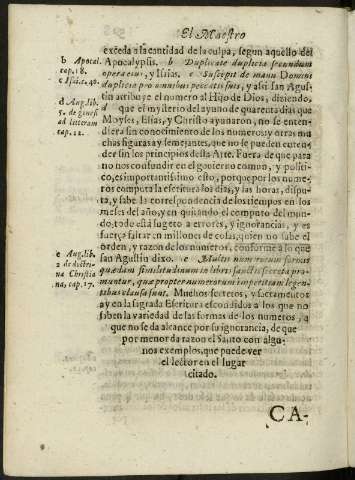 El Maestro
exceda a la cantidad de la culpa, segun aquello del
Apocalypsis. b Duplicate duplicia secundum
opera eius, y Isaias. c Suscepit de manu Domini
duplicia pro omnibus peccatis suis, y assi san Agus
tin atribuye el numero al Hijo de Dios, diziendo,
d que el mysterio del ayuno de quarenta dias que
Moyses, Elias, y Christo ayunaron, no se enten-
diera sin conocimiento de los numeros; y otras mu
chas figuras y semejantes, que no se pueden enten-
der sin los principios desta Arte. Fuera de que para
no nos confundir en el gouierno comun, y politi-
co, es importantissimo esto, porque por los nume-
ros computa la escritura los dias, y las horas, dispu-
ta, y sabe la correspondencia de los tiempos en los
meses del año, y en quitando el computo del mun-
do, todo està sugeto a errores, y ignorancias, y es
fuerça faltar en millones de cosas, quien no sabe el
orden, y razon de los numeros, conforme a lo que
san Agustin dixo. e Multis numerorum formis
quædam similitudinum in libris sanctis secreta pro-
muntur, quæ propter numerorum imperitiam legen-
tibus clausa sunt. Muchos secretos, y sacramentos
ay en la sagrada Escritura escondidos a los que no
saben la variedad de las formas de los numeros, a
que no se da alcance por su ignorancia, de que
por menor da razon el Santo con algu-
nos exemplos, que puede ver
el lector en el lugar
citado.
CA-
b Apocal.
cap. 18.
c Isai. c. 40.
d Aug. lib.
5. de genesi
ad litteram
cap. 22.
e Aug. lib.
2 de doctri-
na Christia
na, cap. 17.